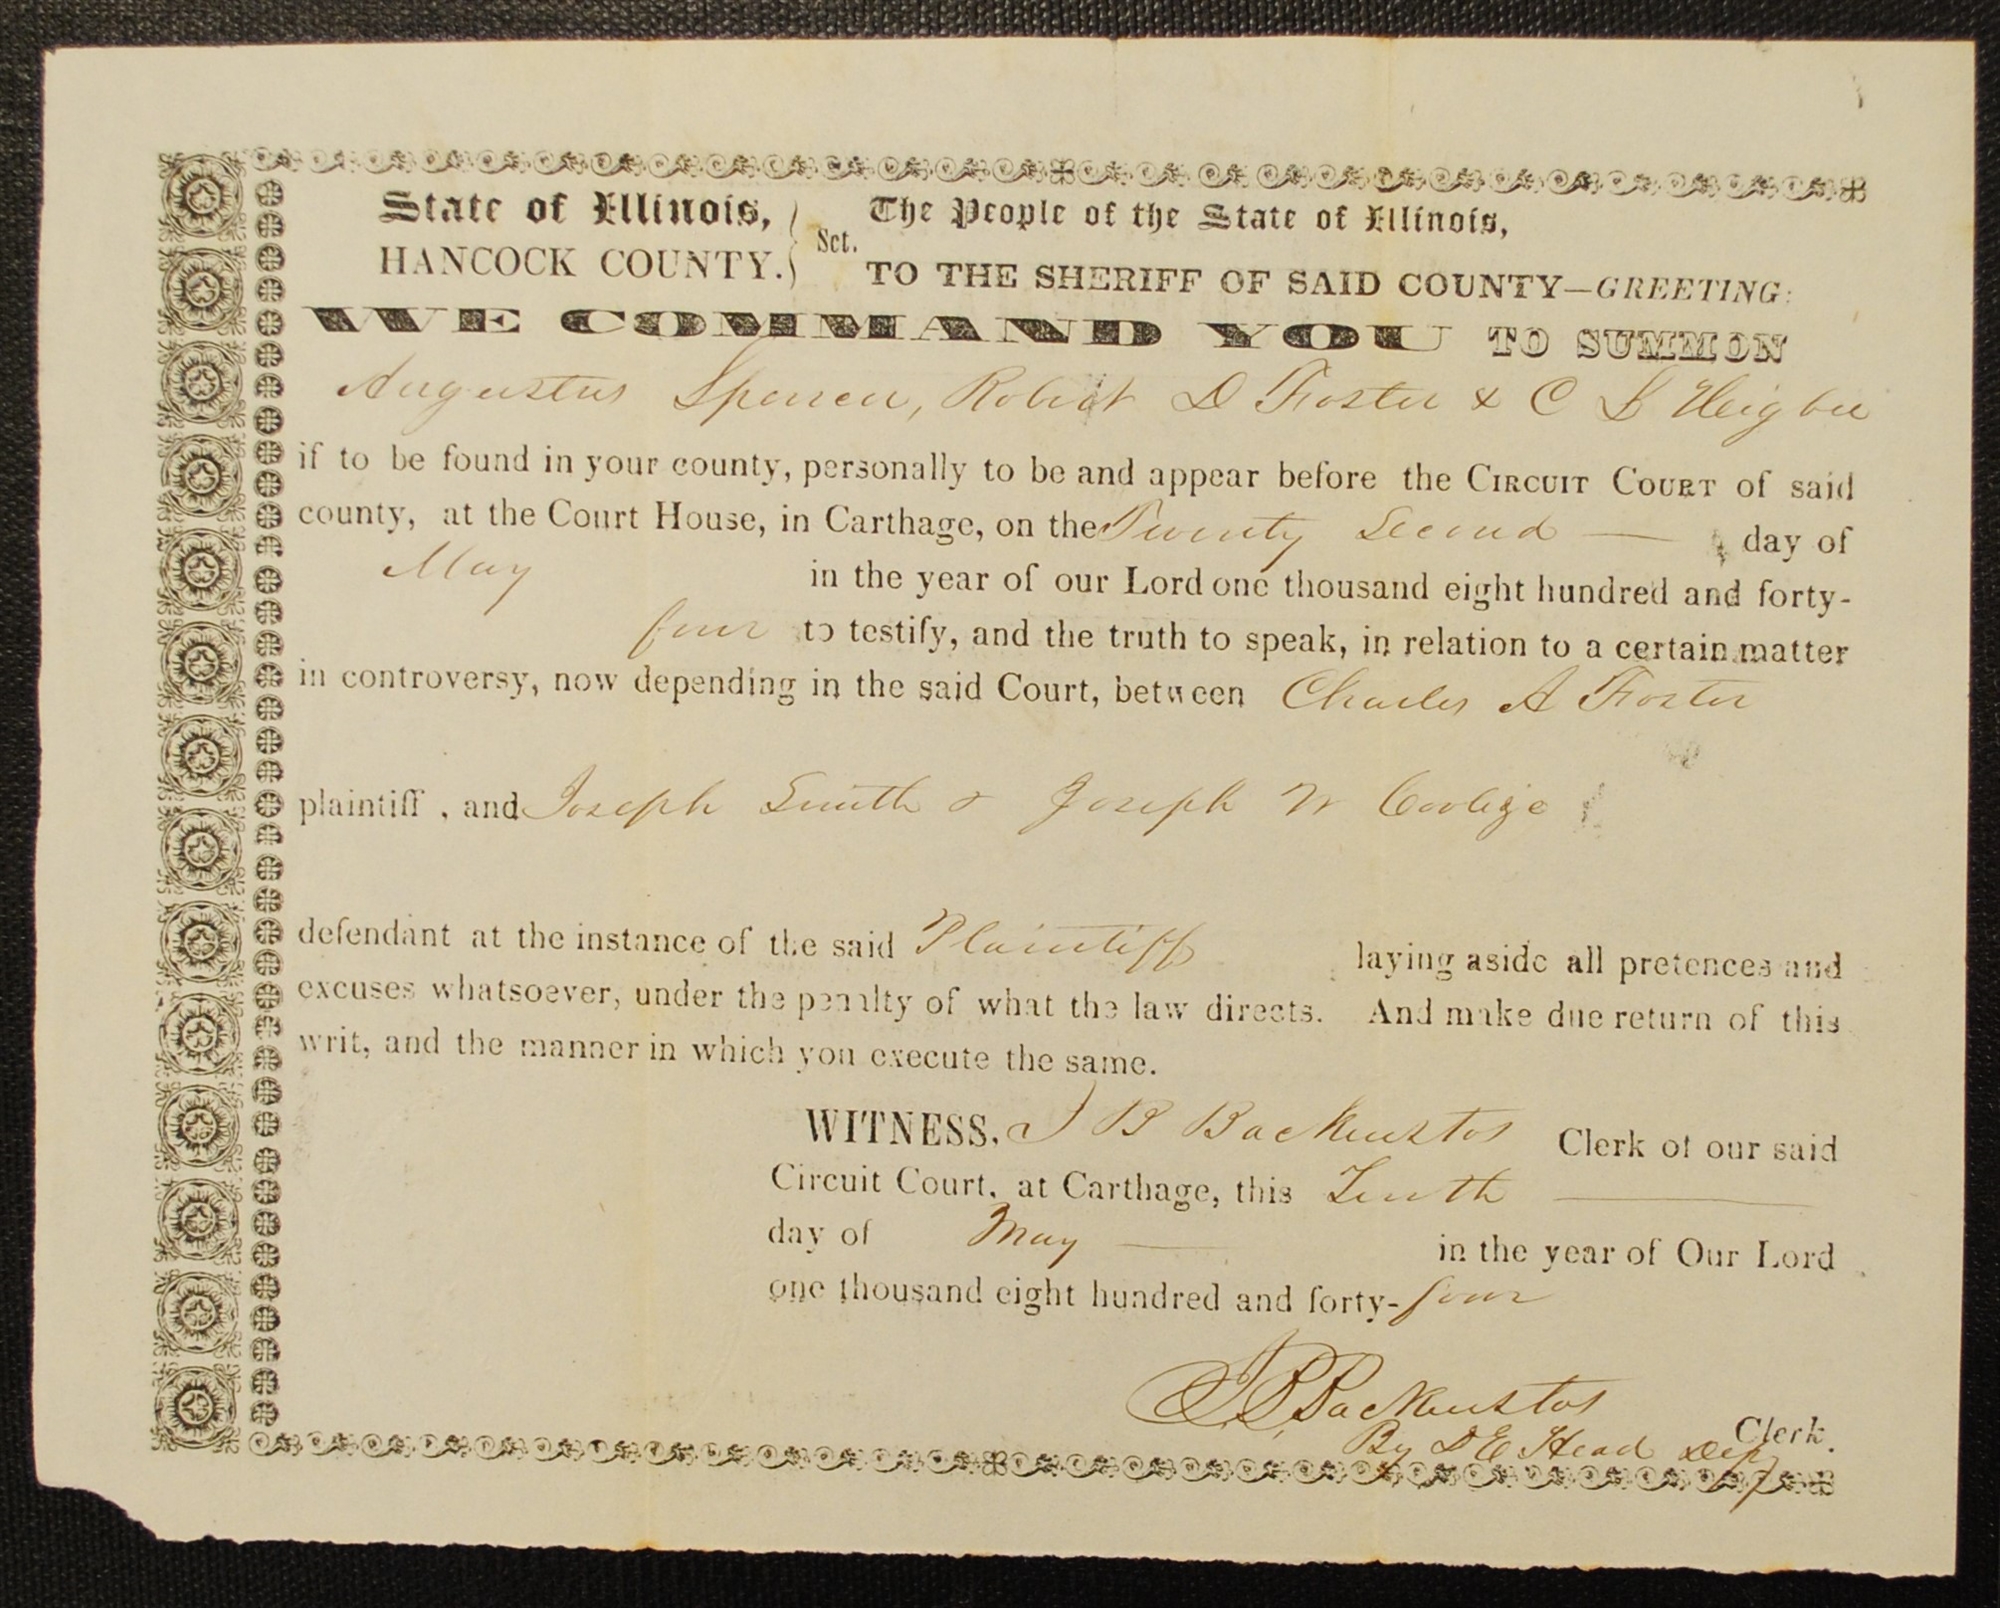 State of Illinois, } Sct. The People of the State of Illinois,
HANCOCK COUNTY. TO THE SHERIFF OF SAID COUNTY—GREETING:
WE COMMAND YOU TO SUMMON
Augustus Spencer, Robert D Foster & C L Higbee
if to be found in your county, personally to be and appear before the CIRCUIT COURT of said
county, at the Court House, in Carthage, on the Twenty Second — day of
May in the year of our Lord one thousand eight hundred and forty-
four to testify, and the truth to speak, in relation to a certain matter
in controversy, now depending in the said Court, between Charles A Foster
plaintiff , and Joseph Smith & Joseph W Coolige
defendant at the instance of the said Plaintiff laying aside all pretences and
excuses whatsoever, under the penalty of what the law directs. And make due return of this
writ, and the manner in which you execute the same.
WITNESS, J B Backenstos Clerk of our said
Circuit Court, at Carthage, this Tenth —
day of May — in the year of Our Lord
one thousand eight hundred and forty-four
J. B. Backenstos
Clerk.
By D E Head Dep